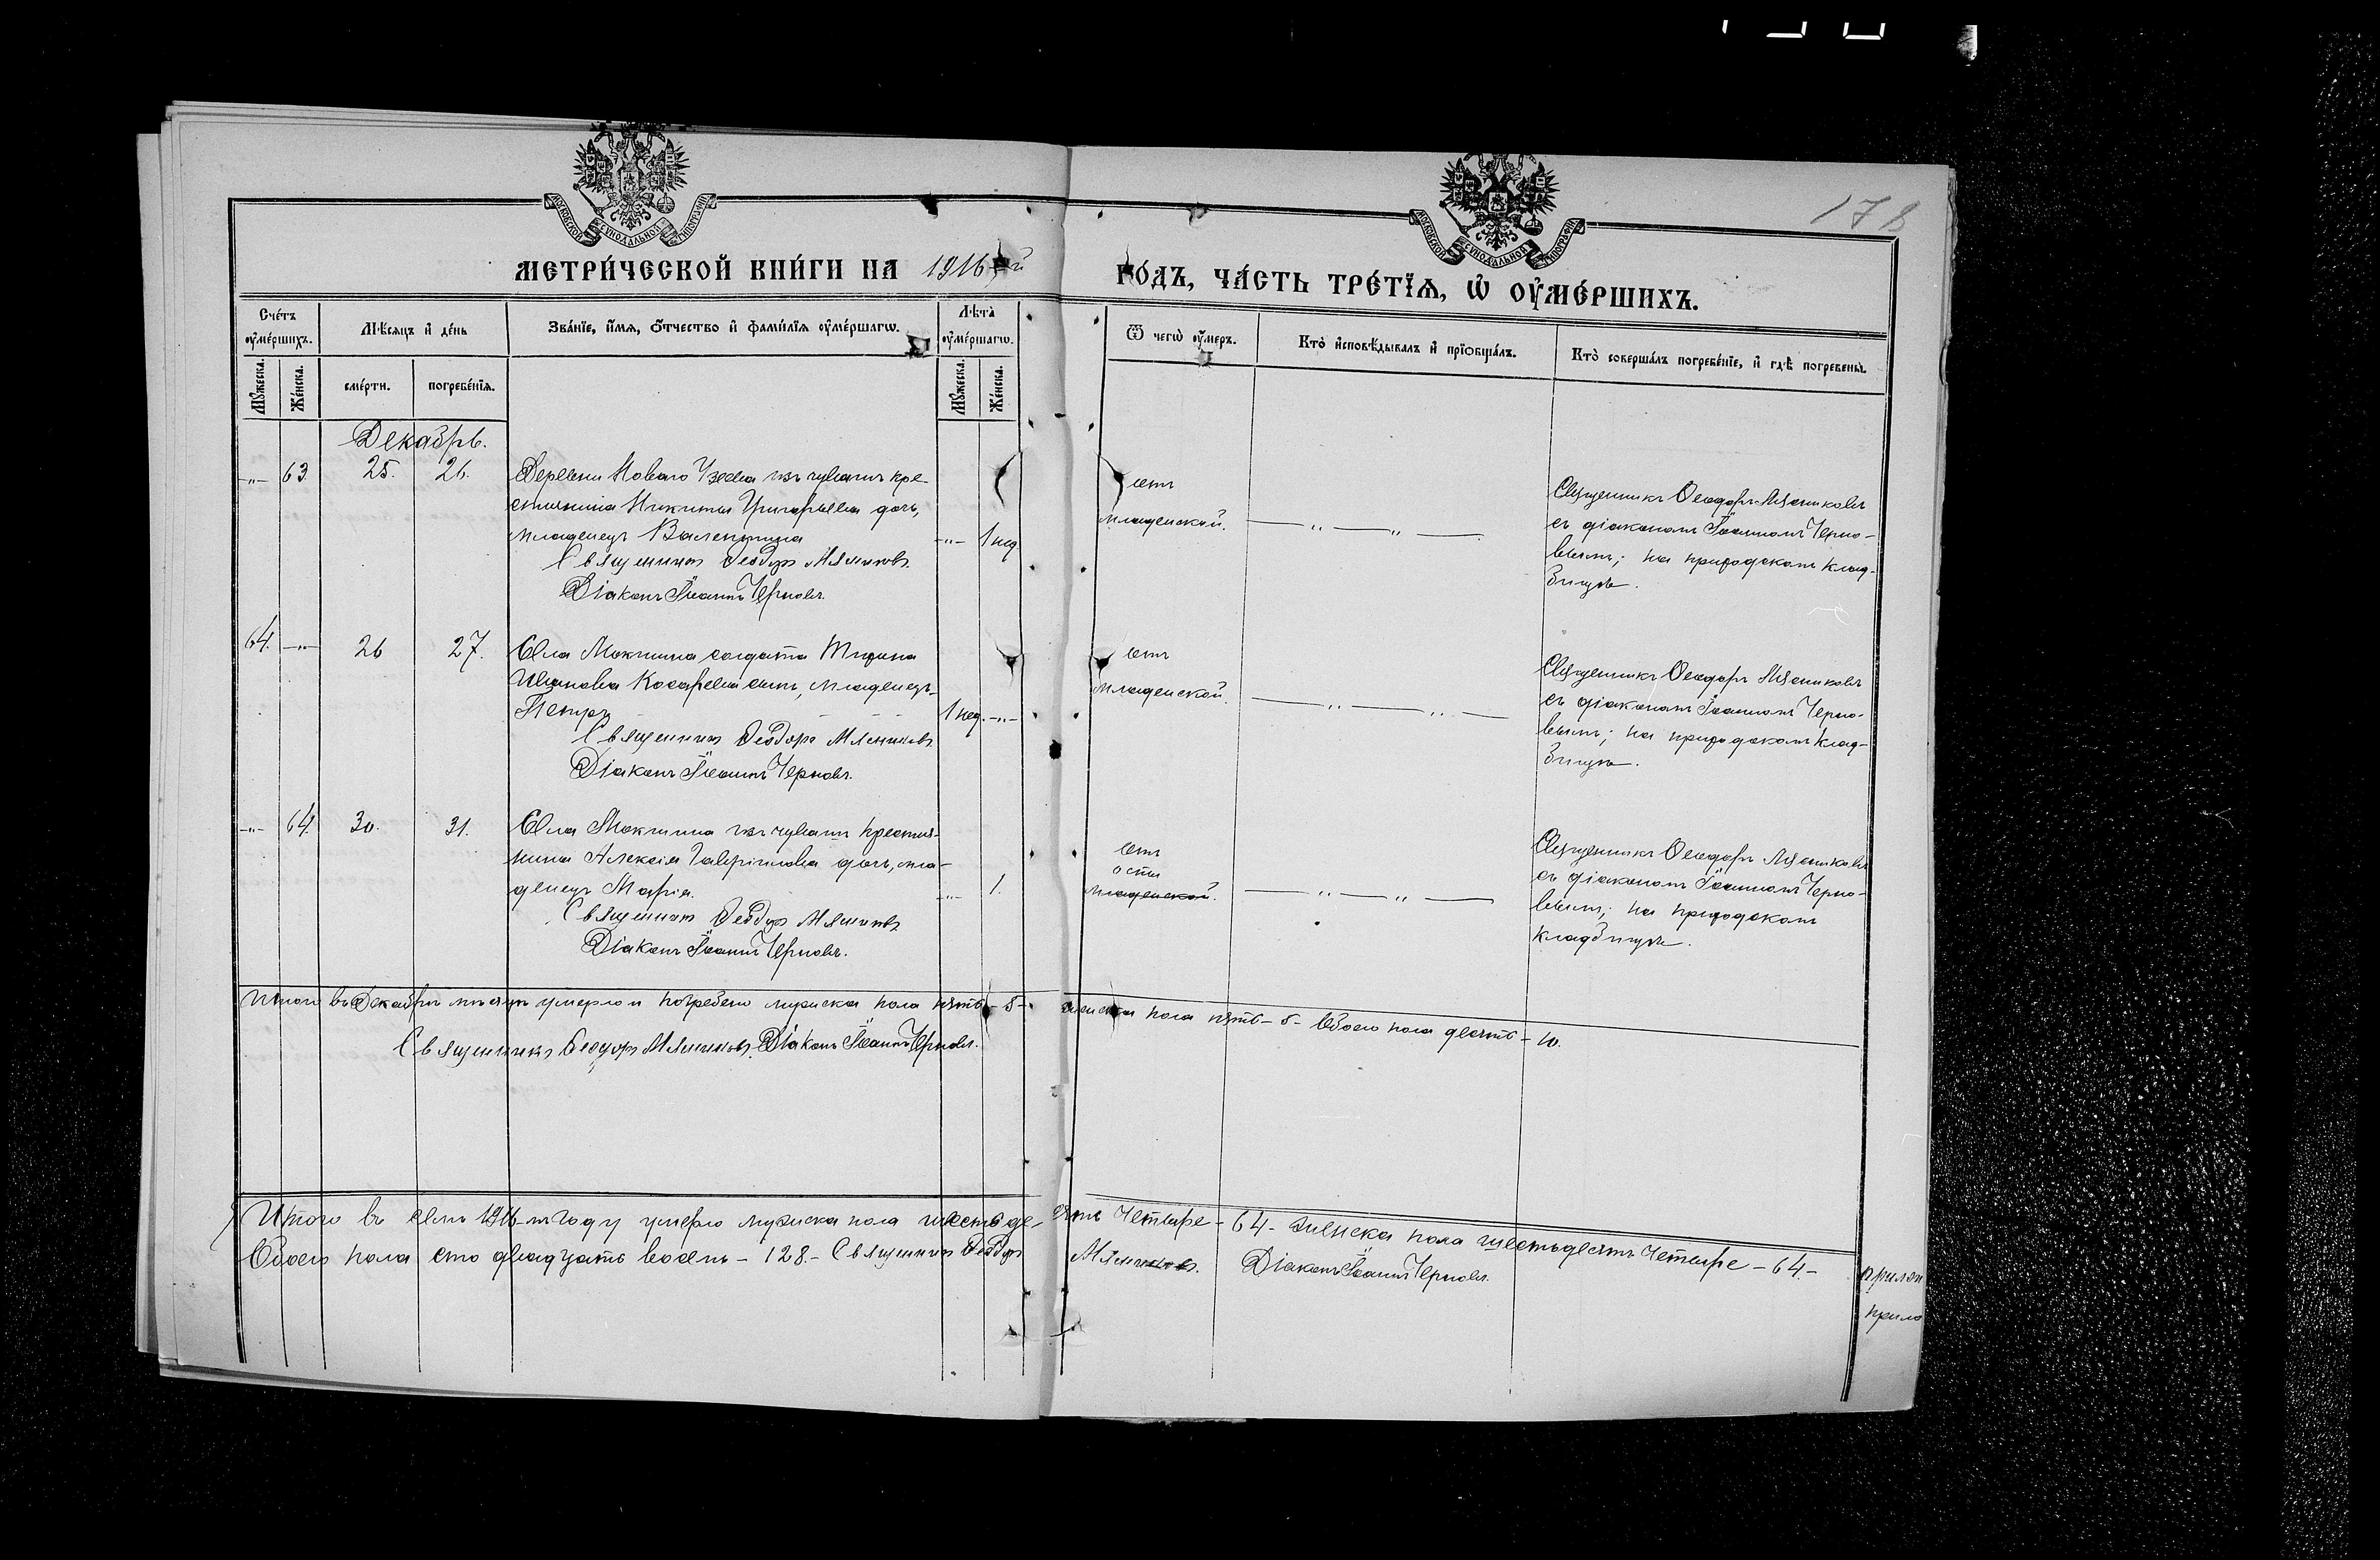 МОСКОВСКОЙ СѴНОДАЛЬНОЙ ТИПОГРАФІИ
МОСКОВСКОЙ СѴНОДАЛЬНОЙ ТИПОГРАФІИ
178
МЕТРИ́ЧЕСКОЙ КНИ́ГИ НА 1916-й
ГО́ДЪ, ЧА́СТЬ ТРЕ́ТЇѦ, Ѡ ОУМЕ́РШИХЪ.
Сче́тъ оуме́ршихъ.
Мѣсяцъ и де́нь
Зва́нїе, и́мя, о́тчество и фами́лїя оуме́ршагѡ.
Лѣта̀ оуме́ршагѡ.
Ѿ чегѡ̀ оу́меръ.
Кто̀ исповѣ́дывалъ и прїобща́лъ.
Кто̀ соверша́лъ погребе́нїе, и гдѣ̀ погребены̀.
Мꙋ́жеска.
Же́нска.
сме́рти.
погребе́нїя.
Мꙋ́жеска.
Же́нска.
Декабрь.
-„- 63. 25. 26.
Деревни Новаго Узеева изъ чувашъ кре-
стьянина Никиты Григорьева дочь,
младенецъ Валентина -„- 1 нед
Священникъ Ѳеодоръ Мясниковъ
Діаконъ Іоаннъ Черновъ.
отъ
младенской. — „ — „ —
Священникъ Ѳеодоръ Мясниковъ
съ діакономъ Іоанномъ Черно-
вымъ; на приходскомъ клад-
бищѣ.
64. -„- 26 27.
Села Мокшина солдата Тихона
Иванова Косарева сынъ, младенецъ
Петръ 1 нед. -„-
Священникъ Ѳеодоръ Мясниковъ
Діаконъ Іоаннъ Черновъ.
отъ
младенской. — „ — „ —
Священникъ Ѳеодоръ Мясниковъ
съ діакономъ Іоанномъ Черно-
вымъ; на приходскомъ клад-
бищѣ.
-„- 64. 30. 31.
Села Мокшина изъ чувашъ крестья-
нина Алексія Гавріилова дочь, мла-
денецъ Марія. -„- 1.
Священникъ Ѳеодоръ Мясниковъ
Діаконъ Іоаннъ Черновъ.
отъ
оспы
младенской. — „ — „ —
Священникъ Ѳеодоръ Мясниковъ
съ діакономъ Іоанномъ Черно-
вымъ; на приходскомъ
кладбищѣ.
Итого въ Декабрѣ мѣсяцѣ умерло и погребено мужеска пола пять - 5 - женска пола пять - 5 - Обоего пола десять - 10.
Священникъ Ѳеодоръ Мясниковъ. Діаконъ Іоаннъ Черновъ.
Итого въ семъ 1916-мъ году умерло мужеска пола шестьде-сятъ четыре - 64 - женска пола шестьдесятъ четыре - 64. -
Обоего пола сто двадцать восемь - 128. - Священникъ Ѳеодоръ Мясниковъ. Діаконъ Іоаннъ Черновъ.
прило